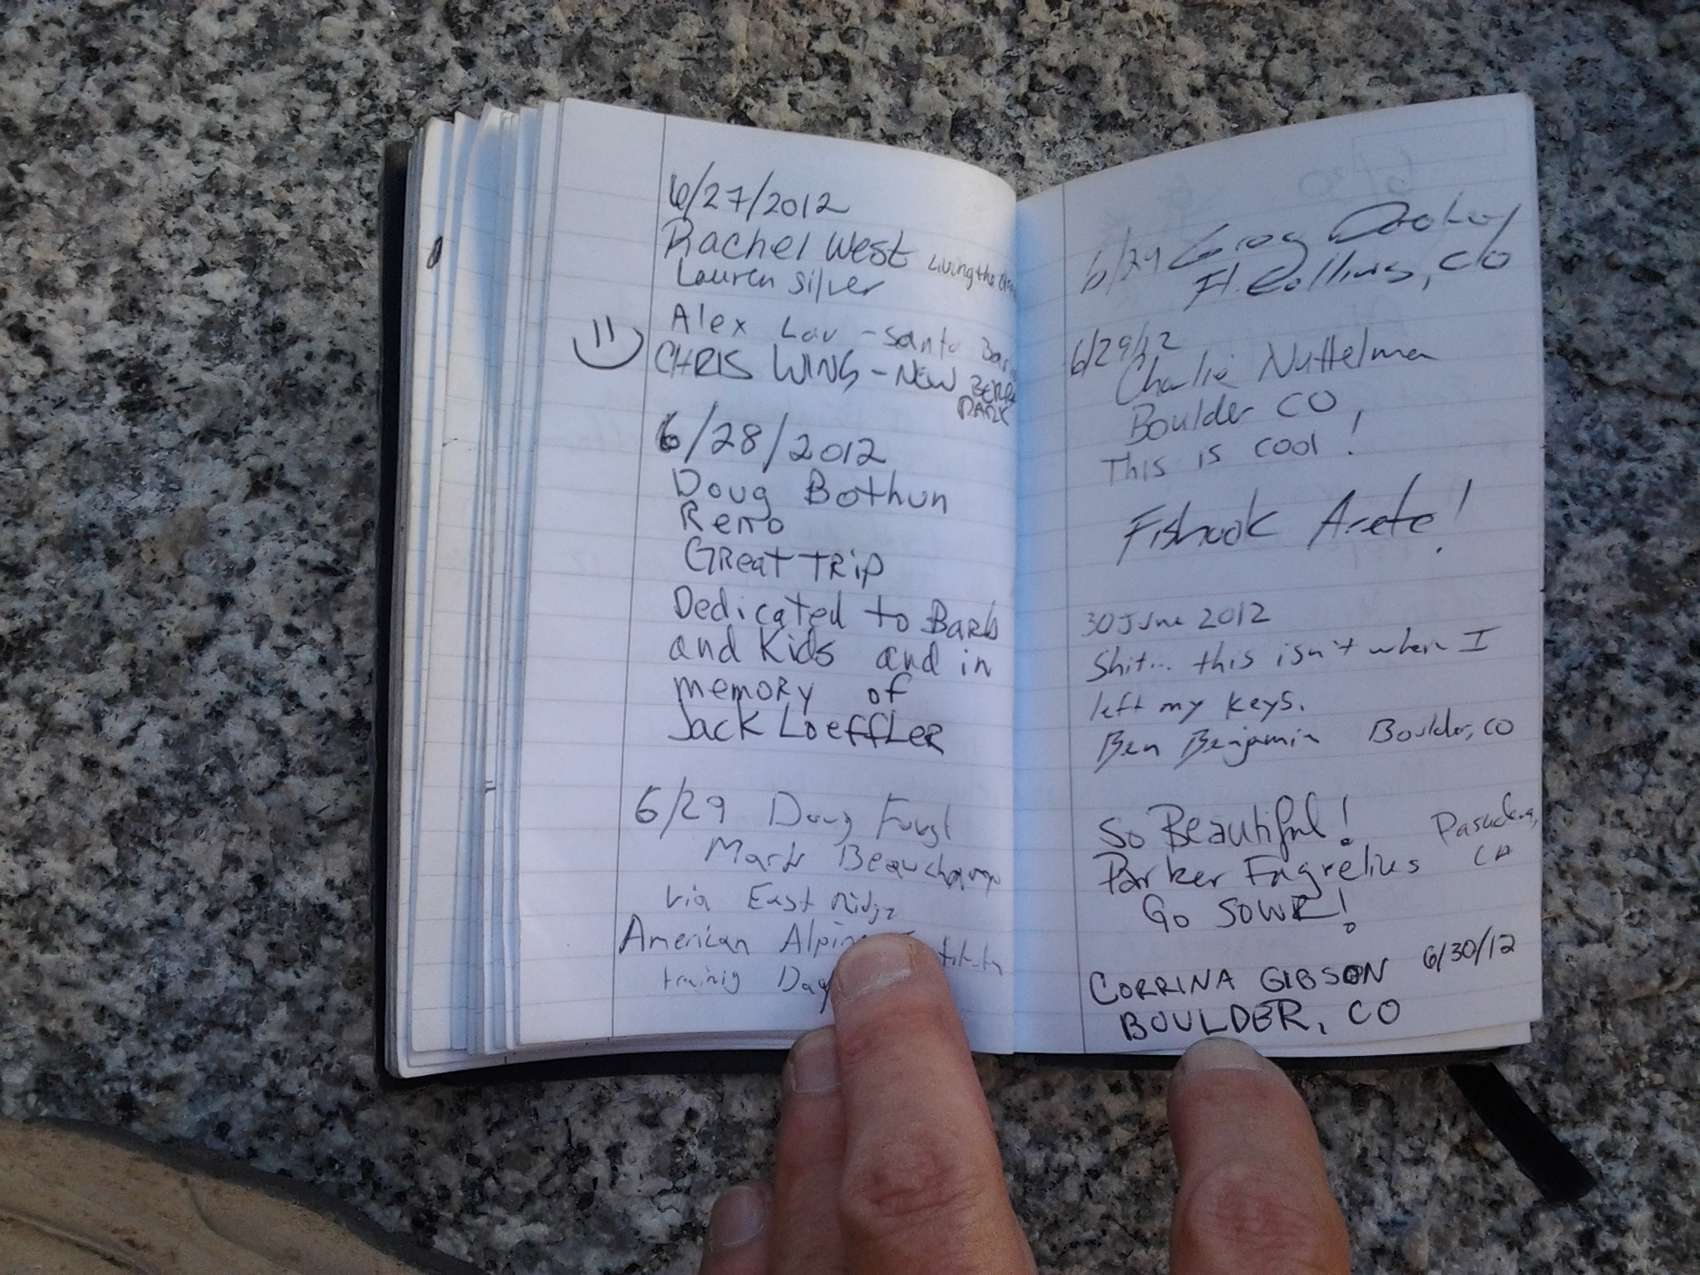 6/27/2012
Rachel West Living the
Lauren Silver
Alex Lau - Santa
CHRIS WING - NEW
PARK
6/28/2012
Doug Bothun
Reno
Great trip
Dedicated to Barb
and Kids and in
memory of
Jack Loeffler
6/29 Doug
Mark Beauchamp
via East Ridge
American Alpine
training Day
6/29 Greg
Ft. Collins, CO
6/29/12
Charlie Nuttelman
Boulder CO
This is cool!
Fishook Arete!
30 June 2012
Shit... this isn't where I
left my keys.
Ben Benjamin Boulder, CO
So Beautiful!
Parker Fagrelius Pasadena,
CA
Go SOWR!
CORRINA GIBSON 6/30/12
BOULDER, CO